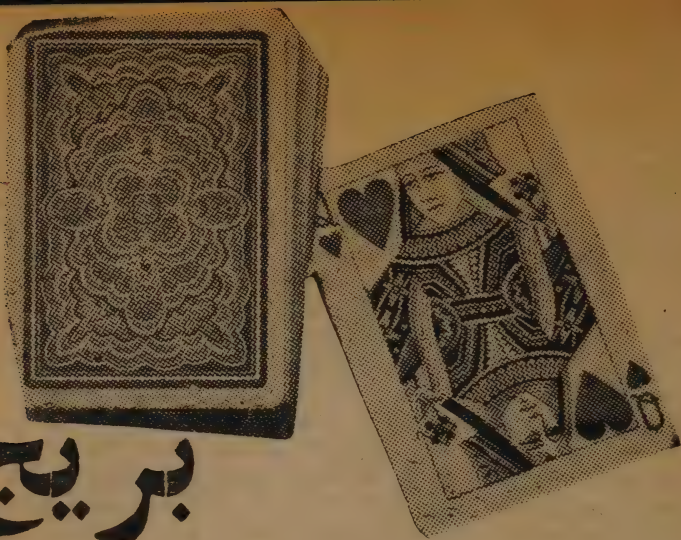 بريج
Q